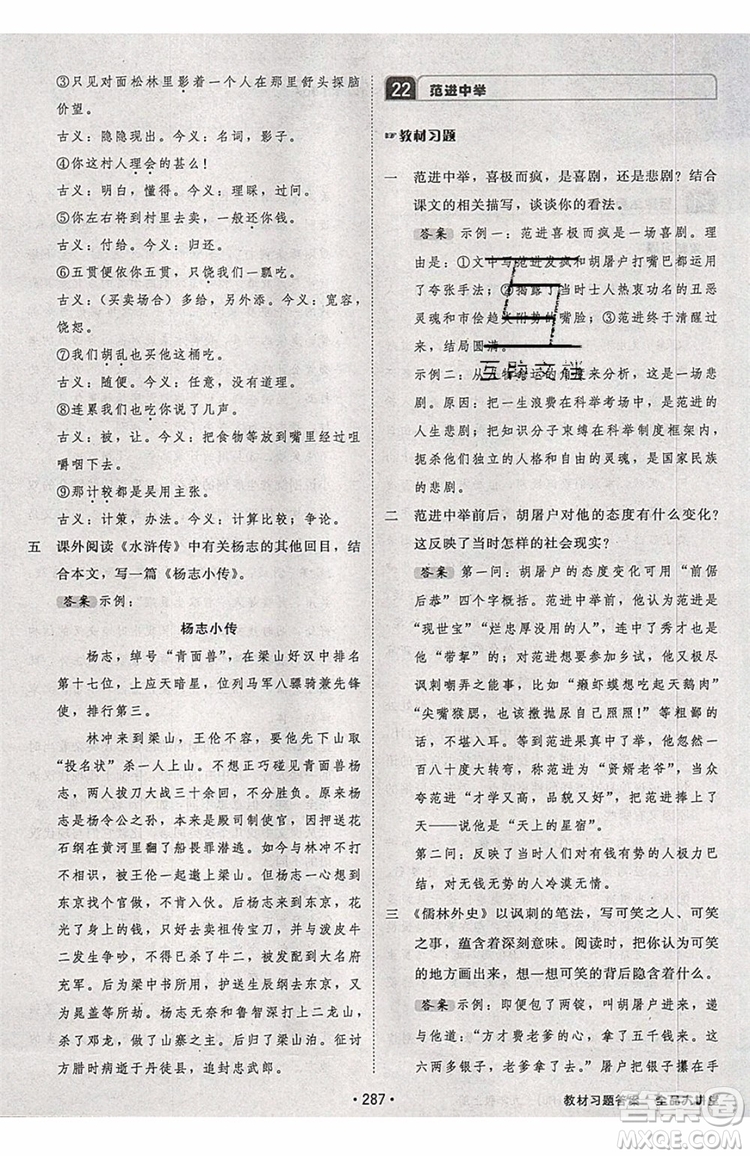 ③只见对面松林里影着一个人在那里舒头探脑
价望。
古义：隐隐现出。今义：名词，影子。
④你这村人理会的甚么！
古义：明白，懂得。今义：理睬，过问。
⑤没时便还你钱。
古义：付给。今义：归还。
⑥五贯便依你五贯，只饶我们一瓢吃。
古义：（买卖场合）多给，另外给。今义：宽容，
饶恕。
⑦我们胡乱也买他这桶吃。
古义：随便。今义：任意，没有道理。
⑧连累我们也吃你说了几声。
古义：让，被。今义：把食物等放到嘴里经过咀
嚼咽下去。
⑨那计较都是吴用主张。
古义：计策，办法。今义：计算比较；争论。
五 课外阅读《水浒传》中有关杨志的其他回目，结
合本文，写一篇《杨志小传》。
答案 示例：
杨志小传
杨志，绰号“青面兽”，在梁山好汉中排名
第十七位，上应天暗星，位列马军八骠骑兼先锋
使，排行第三。
林冲来到梁山，王伦不容，要他去山下取
“投名状”杀一人上山。不想正巧碰到青面兽杨
志，两人拔刀大战三十余回，不分胜负。原来杨
志是杨令公之孙，本来是殿司制使官，因押送花
石纲在黄河里翻了船畏罪潜逃。因与林冲不打
不成交，一起被王伦邀请上山。杨志一心想再到
东京找个官做，并不愿落草，便回到东京，花光
了钱也没找到官，只好去卖祖传宝刀，与泼皮牛
二发生冲突，不得已杀了牛二，被刺配到大名府
充军。后在梁中书所，护送生辰纲去东京，但半
途被晁盖等劫取。杨志无奈和鲁智深打上二龙山，
杀了邓龙，做了山寨之主。后归梁山泊。征讨
方腊时病逝于丹徒县，追封忠武郎。
22 范进中举
教材习题
一 范进中举，喜极而疯，是喜剧，还是悲剧？结合
课文的相关描写，谈谈你的看法。
答案 示例一：范进喜极而疯是一场喜剧。理
由是：①文中写范进发疯和胡屠户打嘴巴都运用
了夸张手法；②揭露了当时士人热衷功名的丑恶
灵魂和市侩趋炎附势的嘴脸；③范进终于清醒过
来，结局圆满。
示例二：从人物命运的角度来分析，这是一场悲
剧。原因：把一生浪费在科举考场中，是范进的
人生悲剧；把知识分子束缚在科举制度中，从而
扼杀他们独立的人格和自由的灵魂，是国家民族
的悲剧。
二 范进中举前后，胡屠户对他的态度有什么变化？
这反映了当时怎样的社会现实？
答案 第一问：胡屠户的态度变化可用“前倨
后恭”四个字概括。范进中举前，范进是
“现世宝”“烂忠厚没用的人”，连中了秀才也是
他“带挈”的；面对范进想参加乡试，他不仅讽
讽刺嘲弄，而且进行人格侮辱，比如“癞虾蟆想吃天鹅肉”
“尖嘴猴腮，也该撒抛尿自己照照！”等，粗鄙
不堪，不堪入耳。等到范进果真中了举，态度一
百八十度大转弯，称范进为“贤婿老爷”，当众
夸范进“才学又高，品貌又好”，甚至吹捧上了
天——说是“天上的星宿”。
第二问：反映了当时人们对有钱有势的人极力巴
结，对无钱无势的人冷漠无情。
三 《儒林外史》以讽刺的笔法，写可笑之人、可笑
之事，蕴含着深刻意味。阅读时，把你认为可笑
的地方画出来，想一想可笑的背后隐含着什么。
答案 示例：即便包了两锭，叫胡屠户进来，递
与他道：“方才费老爹的心，拿了五千钱来。这
六两多银子，老爹拿了去。”屠户把银子攥在手
互助文档
·287·
教材习题答案 全品大讲堂
答案圈